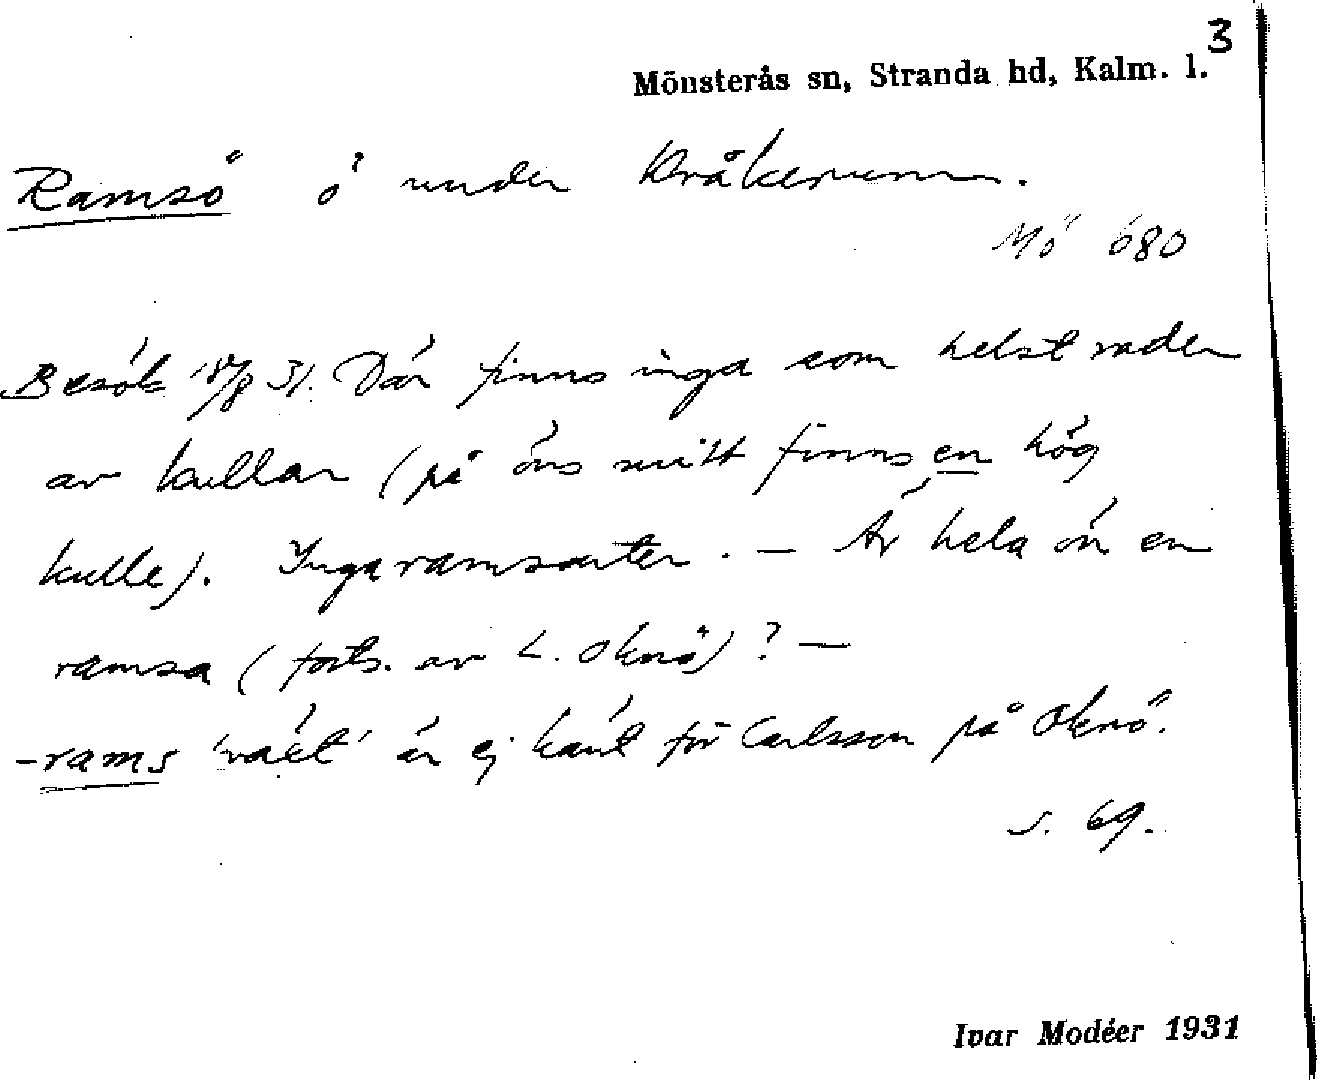 3
Mönsterås sn, Stranda hd, Kalm. l.
Ramsö ö under Kråkerum.
Mö 680
Besök 18/8 31. Där finns inga som helst rader
av kullar (på öns mitt finns en hög
kulle). Inga ramsarter. — Är hela ön en
ramsa (forts. av L. Oknö)? —
-rams 'växt' är ej känt för Carlsson på Oknö.
s. 69.
Ivar Modéer 1931